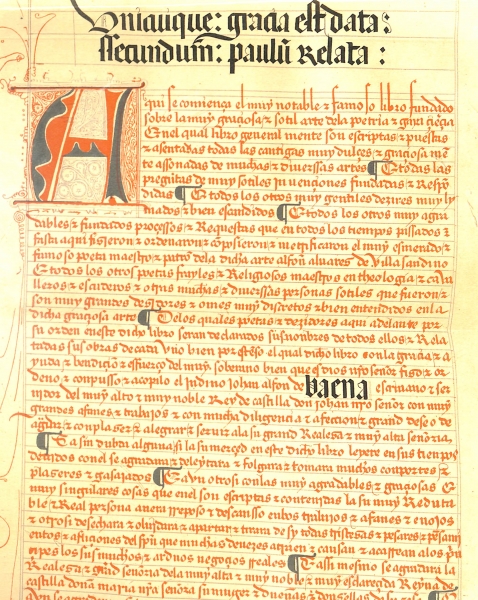 Unicuique: gracia est data:
ssecundum: paulũ Relata:
Aqui se comiença el muy notable & famoso libro fundado
sobre la muy graciosa & sotil arte dela poetria & gaya çiẽçia
Enel qual libro general mente son escriptas & puestas
& asentadas todas las cantigas muy dulçes & graciosa mẽ
te assonadas de muchas & diuerssas artes ¶ E todas las
preguntas de muy sotiles inuenciones fundadas & Respõ
didas ¶ E todos los otros muy gentiles dezires muy li
mados & bien escandidos ¶ E todos los otros muy agra
dables & fundados proçessos & Requestas que en todos los tiempos passados &
fasta aqui fizieron & ordenaron & cõposieron & metrificaron el muy esmerado &
famoso poeta maestro & patrõ dela dicha arte alfon aluares de villa sandino
E todos los otros poetas frayles & Religiosos maestros en theologia & caua
lleros & escuderos & otras muchas & diuerssas personas sotiles que fueron &
son muy grandes dezidores & omes muy discretos & bien entendidos enla
dicha graciosa arte ¶ Delos quales poetas & dezidores aqui adelante por
su orden eneste dicho libro seran declarados sus nonbres de todos ellos & Rela
tadas sus obras de cada vno bien por estẽso el qual dicho libro conla gracia & a
yuda & bendiçiõ & esfuerço del muy soberano bien que es dios nr̃o señor fizo & or
deno & conpusso & acopilo el judino johan alfon de baena escriuano & ser
uidor del muy alto & muy noble Rey de castilla don johan nr̃o señor con muy
grandes afanes & trabajos & con mucha diligencia & afecion & grand deseo de
agradar & conplazer & alegrar & seruir ala su grand Realeza & muy alta señoria.
¶ Ca sin dubda alguna si la su merçed en este dicho libro leyere en sus tienpos
deuidos conel se agradara & deleytara & folgara & tomara muchos conportes &
plaseres & gasajados ¶ E avn otrosi conlas muy agradables & graciosas &
muy singulares cosas que enel son escriptas & contenidas la su muy Reduta
ble & Real persona auera rreposo & descansso enlos trabajos & afanes & enojos
& otrosi desechara & oluidara & apartara & tirara de sy todas tristesas & pesares & pensami
entos & afliciones del spũ que muchas deuezes atraen & causan & acarrean alos prĩ
çipes los sus muchos & arduos negoçios rreales ¶ E assi mesmo se agradara la
Realeza & grãd señoria dela muy alta & muy noble & muy esclareçida Reyna de
castilla doña maria nr̃a señora su muger & dueñas & donsellas de su casa ¶